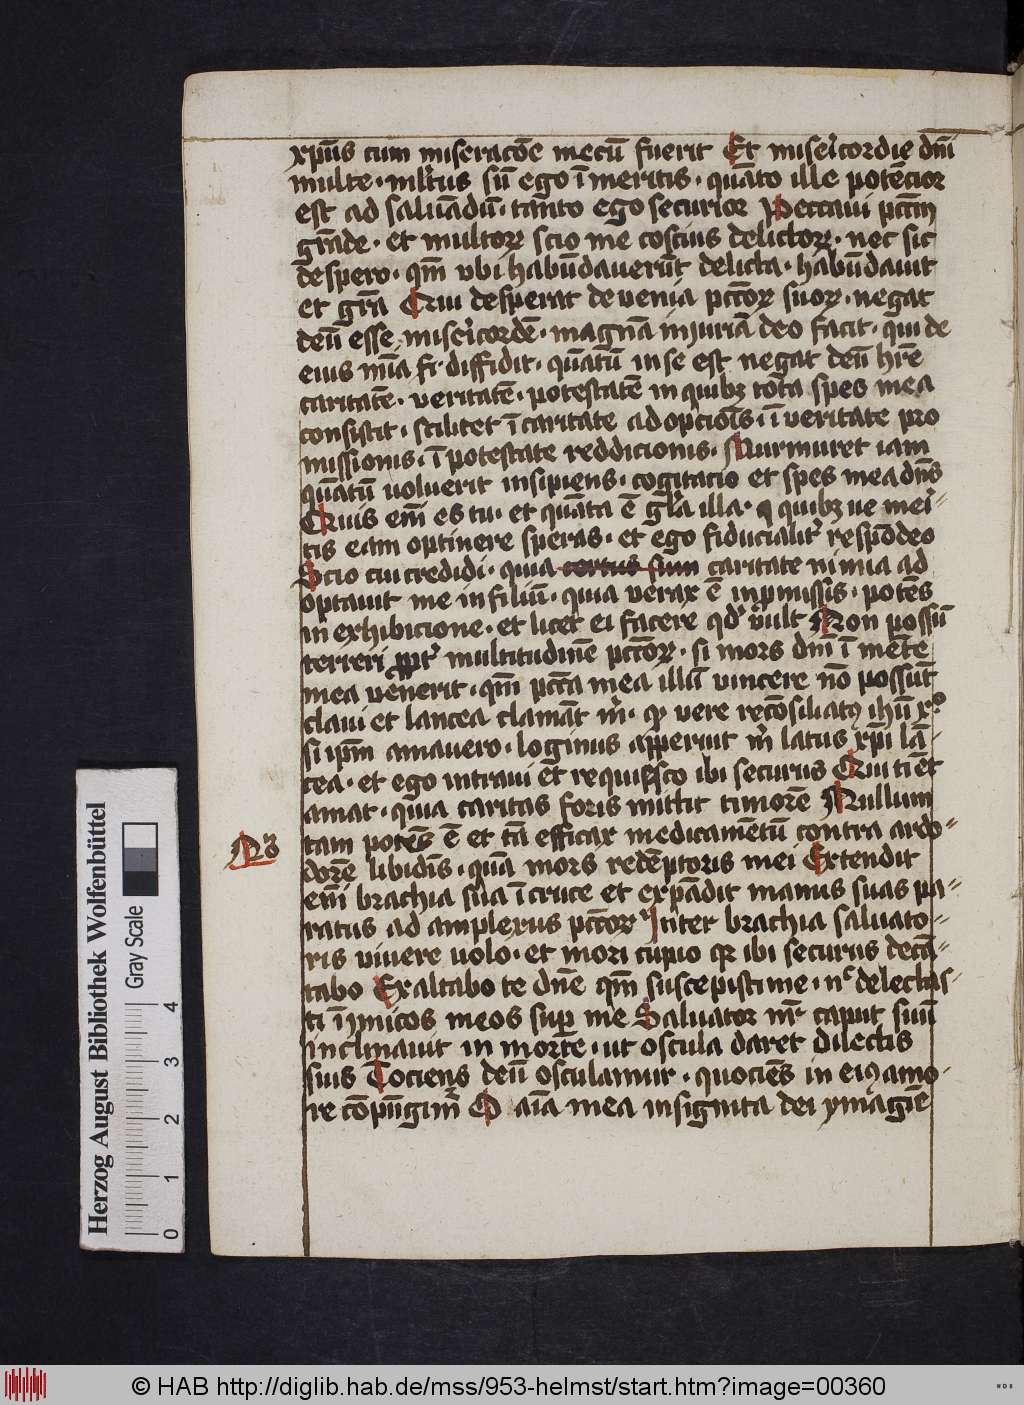 xp̄us cum miseracōe mecū fuerit Et misericordie dn̄i
multe · mlt̓us sū ego ī meritis · quāto ille potēcior
est ad saluādū · tanto ego securior Peccaui pctm̄
grāde · et multoꝝ scio me cōscius delictoꝝ · nec sic
despero · qm̄ vbi habūdauerūt delicta · habūdauit
et grā Qui desperat de venia pctōꝝ suoꝝ · negat
deū esse misericordē · magnā iniuriā deo facit · qui de
eius mīa diffidit · quātū in se est negat deū hr̄e
caritatē · veritatē · potestatē in quibꝫ tota spes mea
consistit · scilicet ī caritate adopcioīs · ī veritate pro
missionis · ī potestate reddicionis · Murmuret iam
quātū uoluerit insipiens · cogitacio et spes mea dn̄s
Quis em̄ es tu · et quāta ē glīa illa · quibꝫ ue meri-
tis eam optinere speras · et ego fiducialit̓ respōdeo
Scio cui credidi · quia certus sum caritate nimia ad
optauit me in filiū · quia verax ē in ꝓmissis · potēs
in exhibicione · et licet ei facere qd̓ vult Non possū
terreri ꝓpt̓ multitudinē pctōꝝ · si mors dn̄i ī mēte
mea vēnerit · qm̄ pctā mea illū vincere nō possūt
claui et lancea clamāt m̓ · ꝙ vere recōsiliatꝰ ihū x°
si ip̄m amauero · loginus apperuit m̓ latus xp̄i lā-
cea · et ego intraui et requiesco ibi securus Qui tiēt
amat · quia caritas foris mittit timorē Nullum
tam potēs ē et tā efficax medicamētū contra ardo-
No
dorē libidīs · quā mors redēptoris mei Extendit
em̄ brachia sua ī cruce et expādit manus suas pa-
ratus ad amplexus pctōꝝ Inter brachia saluato-
ris viuere uolo · et mori cupio qꝛ ibi securus decā-
tabo Exaltabo te dn̄e qm̄ suscepisti me · nᶜ delectas-
ti īymicos meos sup̱ me Saluator nr̄ caput suū
inclinauit in morte · ut oscula daret dilectis
suis Tociens deū osculamur · quociēs in eiꝰ amo-
re cōpūgim̄ O aīa mea insignita dei ymagīe
Herzog August Bibliothek Wolfenbüttel
Gray Scale
0 1 2 3 4
© HAB http://diglib.hab.de/mss/953-helmst/start.htm?image=00360